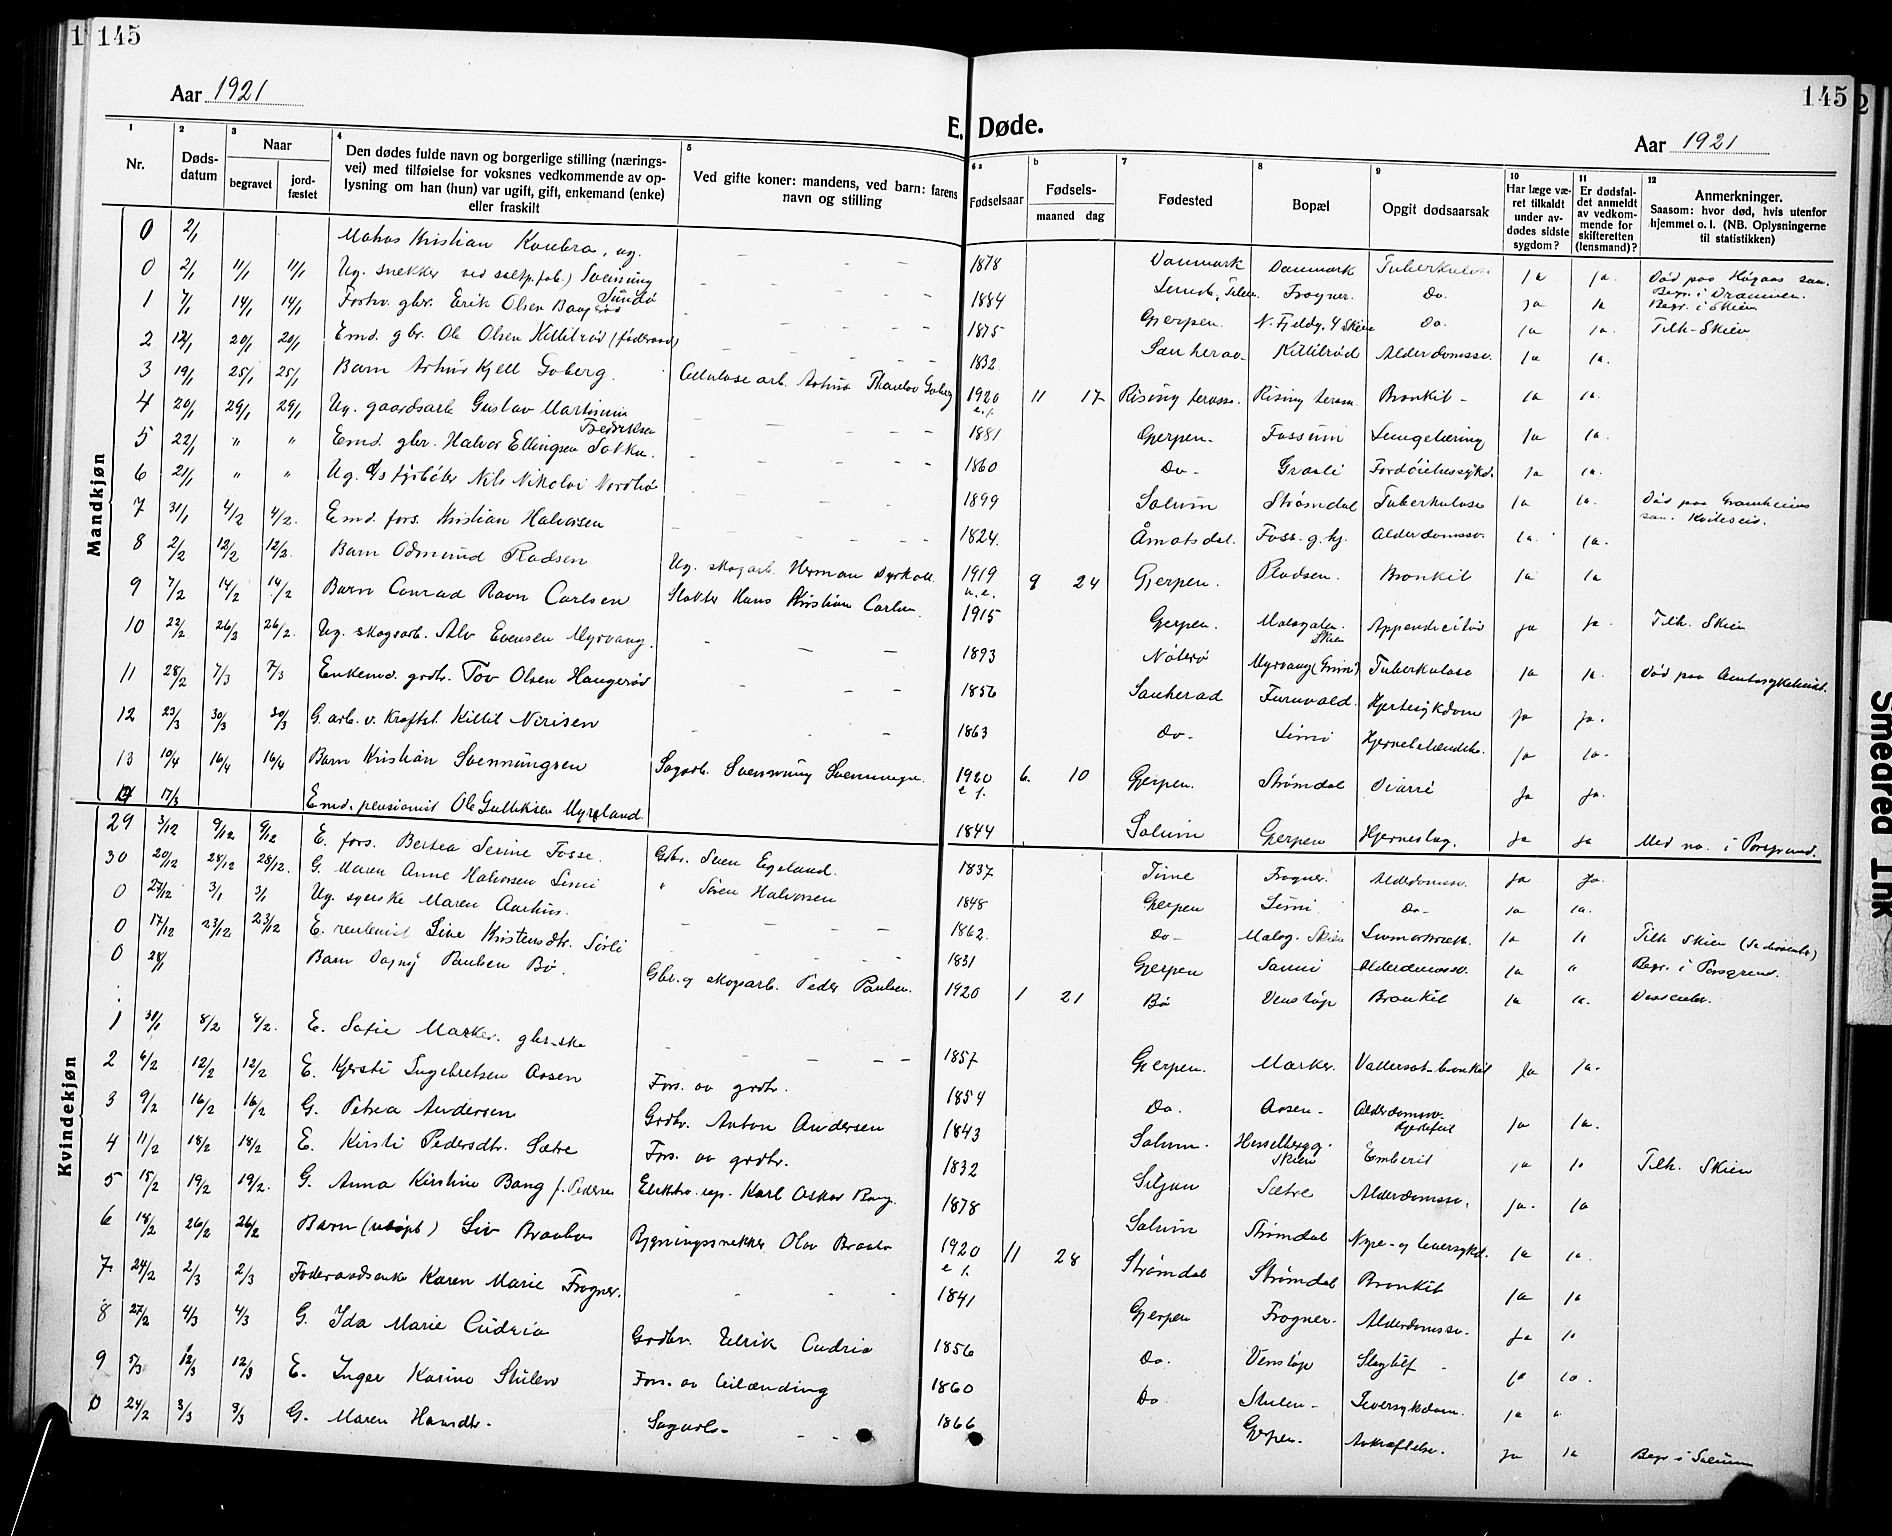 1 145
145 2
Aar 1921
E. Døde.
Aar 1921
1 Nr.
2 Døds-datum
3 Naar
begravet
jord-fæstet
4 Den dødes fulde navn og borgerlige stilling (nærings-
vei) med tilføielse for voksnes vedkommende av op-
lysning om han (hun) var ugift, gift, enkemand (enke)
eller fraskilt
5 Ved gifte koner: mandens, ved barn: farens
navn og stilling
6 a Fødselsaar
b Fødsels-
maaned dag
7 Fødested
8 Bopæl
9 Opgit dødsaarsak
10 Har læge væ-
ret tilkaldt
under av-
dødes sidste
sygdom?
11 Er dødsfal-
det anmeldt
av vedkom-
mende for
skifteretten
(lensmand)?
12 Anmerkninger.
Saasom: hvor død, hvis utenfor
hjemmet o. l. (NB. Oplysningerne
til statistikken)
Mandkjøn
0 2/1 Kristian ug. – – – 1878 Danmark Danmark ja ja. Død paa san. Begr. i Drammen.
0 2/1 11/1 11/1 Ug. snekker ved Sveinung Sundø – – – 1884 Frogner. Do. ja ja Begr. i Skien
1 7/1 14/1 14/1 Forhv. gbr. Erik Olsen – – – 1875 Gjerpen. Do. ja ja. Tilh. Skien
2 12/1 20/1 20/1 Emd. gbr. Ole Olsen Killilrød – – – 1832 Sauherad Killilrød Alderdomssv. ja ja.
3 19/1 25/1 25/1 Barn Arthur Kjell Goberg. Celulosearb. Arthur Thanlov Goberg 1920 e.f. 11 17 Rising terasse. Rising terasse Bronkit – ja ja.
4 20/1 29/1 29/1 Ug. gaardsarb. Gustav Martinius Fredriksen – – – 1881 Gjerpen. Fossum Lungetæring ja ja.
5 22/1 " " Emd. gbr. Halvor Ellingsen – – – 1860 Do – Graali Fordøielsessykd. ja ja.
6 21/1 " " Ug. Nils Nikolai Nordbø – – – 1899 Solum Strømdal Tuberkulose ja ja. Død paa Gramheiens san. Kviteseid.
7 31/1 4/2 4/2. Emd. fors. Kristian Halvorsen – – – 1824. Åmotsdal. Foss. g. hj. Alderdomssv. ja. ja.
8 2/2 12/2 12/2. Barn Odmund Pladsen Ug. skogarb. Herman 1919 u.e. 9 24 Gjerpen. Pladsen. Bronkit ja ja
9 7/2 14/2 14/2 Barn Conrad Ravn Carlsen Slakter Hans Kristian Carlsen 1915 Gjerpen. Skien Appendicitis ja ja. Tilh. Skien
10 22/2 26/2 26/2. Ug. skogsarb. Alv Evensen Myrvang. – – – 1893 Nøterø Myrvang Tuberkulose ja ja. Død paa Amtssykehuset.
11 28/2 7/3 7/3 Enkemd. grdbr. Tov Olsen Haugerød – – – 1856 Sauherad Furuvald. Hjertesykdom ja ja.
12 23/3 30/3 30/3 G. arb. v. Kraftst. Killil Nirisen – – – 1863 Do – Limi ja ja.
13 10/4 16/4 16/4 Barn Kristian Svennungsen Sagarb. Svennung Svennungsen 1920 e f. 6. 10 Gjerpen. Strømdal Diarré ja ja.
17/3 Emd. pensionist Ole Gulliksen Myrland. 1844 Solum Gjerpen Hjerneslag. ja ja Med no. i Porsgrund.
Kvindekjøn
29 3/12 9/12 9/12 E. fors. Bertea Serine Fosse. Grdbr. Sven Egeland. 1837 Time Frogner. Alderdomssv. ja ja.
30 20/12 28/12 28/12. G. Maren Anne Halvorsen Limi " Søren Halvorsen 1848 Gjerpen Limi Do – ja ja.
0 27/12 3/1 3/1 Ug. syerske Maren Aarhus. – – – 1862. Do – Skien ja ja Tilh Skien
0 17/12 23/12 23/12 E. rentenist Line Kirstensdtr. Sørli – – – 1831 Gjerpen Alderdomssv. ja " Begr. i Porsgrund.
0 28/1 Barn Dagny Paulsen Bø. Gbr. og skogsarb. Peder Paulsen. 1920 1 21 Bø Venstøp Bronkit ja ja.
1 30/1 8/2 8/2. E. Sofie Marker. gbr.ske – – – 1857 Gjerpen. Marker. ja ja.
2 6/2 12/2 12/2 E. Kjersti Ingebretsen Aasen Fors. av grdbr. 1854 Do. Aasen – Alderdomssv. Hjertefeil ja ja.
3 9/2 16/2 16/2 G. Petrea Andersen Grdbr. Anton Andersen 1843 Solum. Hesselbergg. Skien ja ja Tilh. Skien
4 11/2 18/2 18/2 E. Kirsti Pedersdtr. Sætre Fors. av grdbr. 1832 Siljan Sætre Alderdomssv. ja. ja
5 15/2 19/2 19/2. G. Anna Kirstine Bang f. Pedersen Elektro. rep. Karl Oskar Bang. 1878 Solum Strømdal Nyre- og leversykd. ja ja.
6 18/2 26/2 26/2 Barn (udøpt) Liv Braaten Bygningssnekker Olav Braaten 1920 e f. 11 28 Strømdal Strømdal Bronkit ja ja
7 24/2 2/3 2/3 Føderaadsenke Karen Marie Frogner. – – – 1841 Gjerpen Frogner. Alderdomssv. ja ja
8 27/2 4/3 4/3 G. Ida Marie Cudrio Grdbr. Ulrik Cudrio 1856 Do. Venstøp ja ja.
9 5/3 12/3 12/3 E. Inger Karine Stulen Fors. av leilænding 1860 Do Stulen – Leversykdom. ja "
0 24/2 3/3 3/3 G. Maren Hansdtr. Sagarb. – – – 1866 Gjerpen. Avkræftelse. ja ja Begr i Solum
Smeared Ink